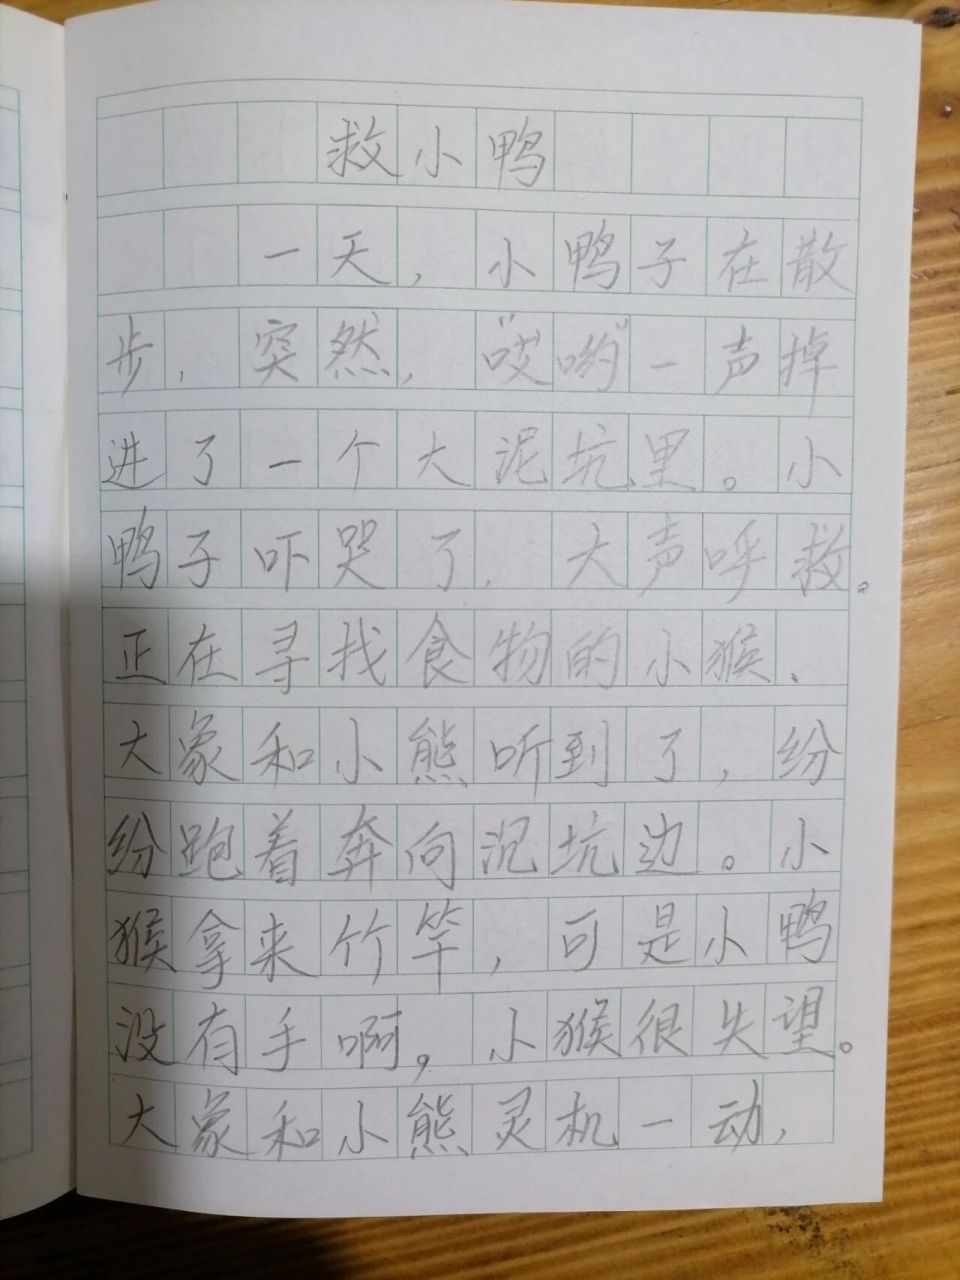 救小鸭
一天，小鸭子在散
步，突然，“哎哟”一声掉
进了一个大泥坑里。小
鸭子吓哭了，大声呼救。
正在寻找食物的小猴、
大象和小熊听到了，纷
纷跑着奔向泥坑边。小
猴拿来竹竿，可是小鸭
没有手啊，小猴很失望。
大象和小熊灵机一动，